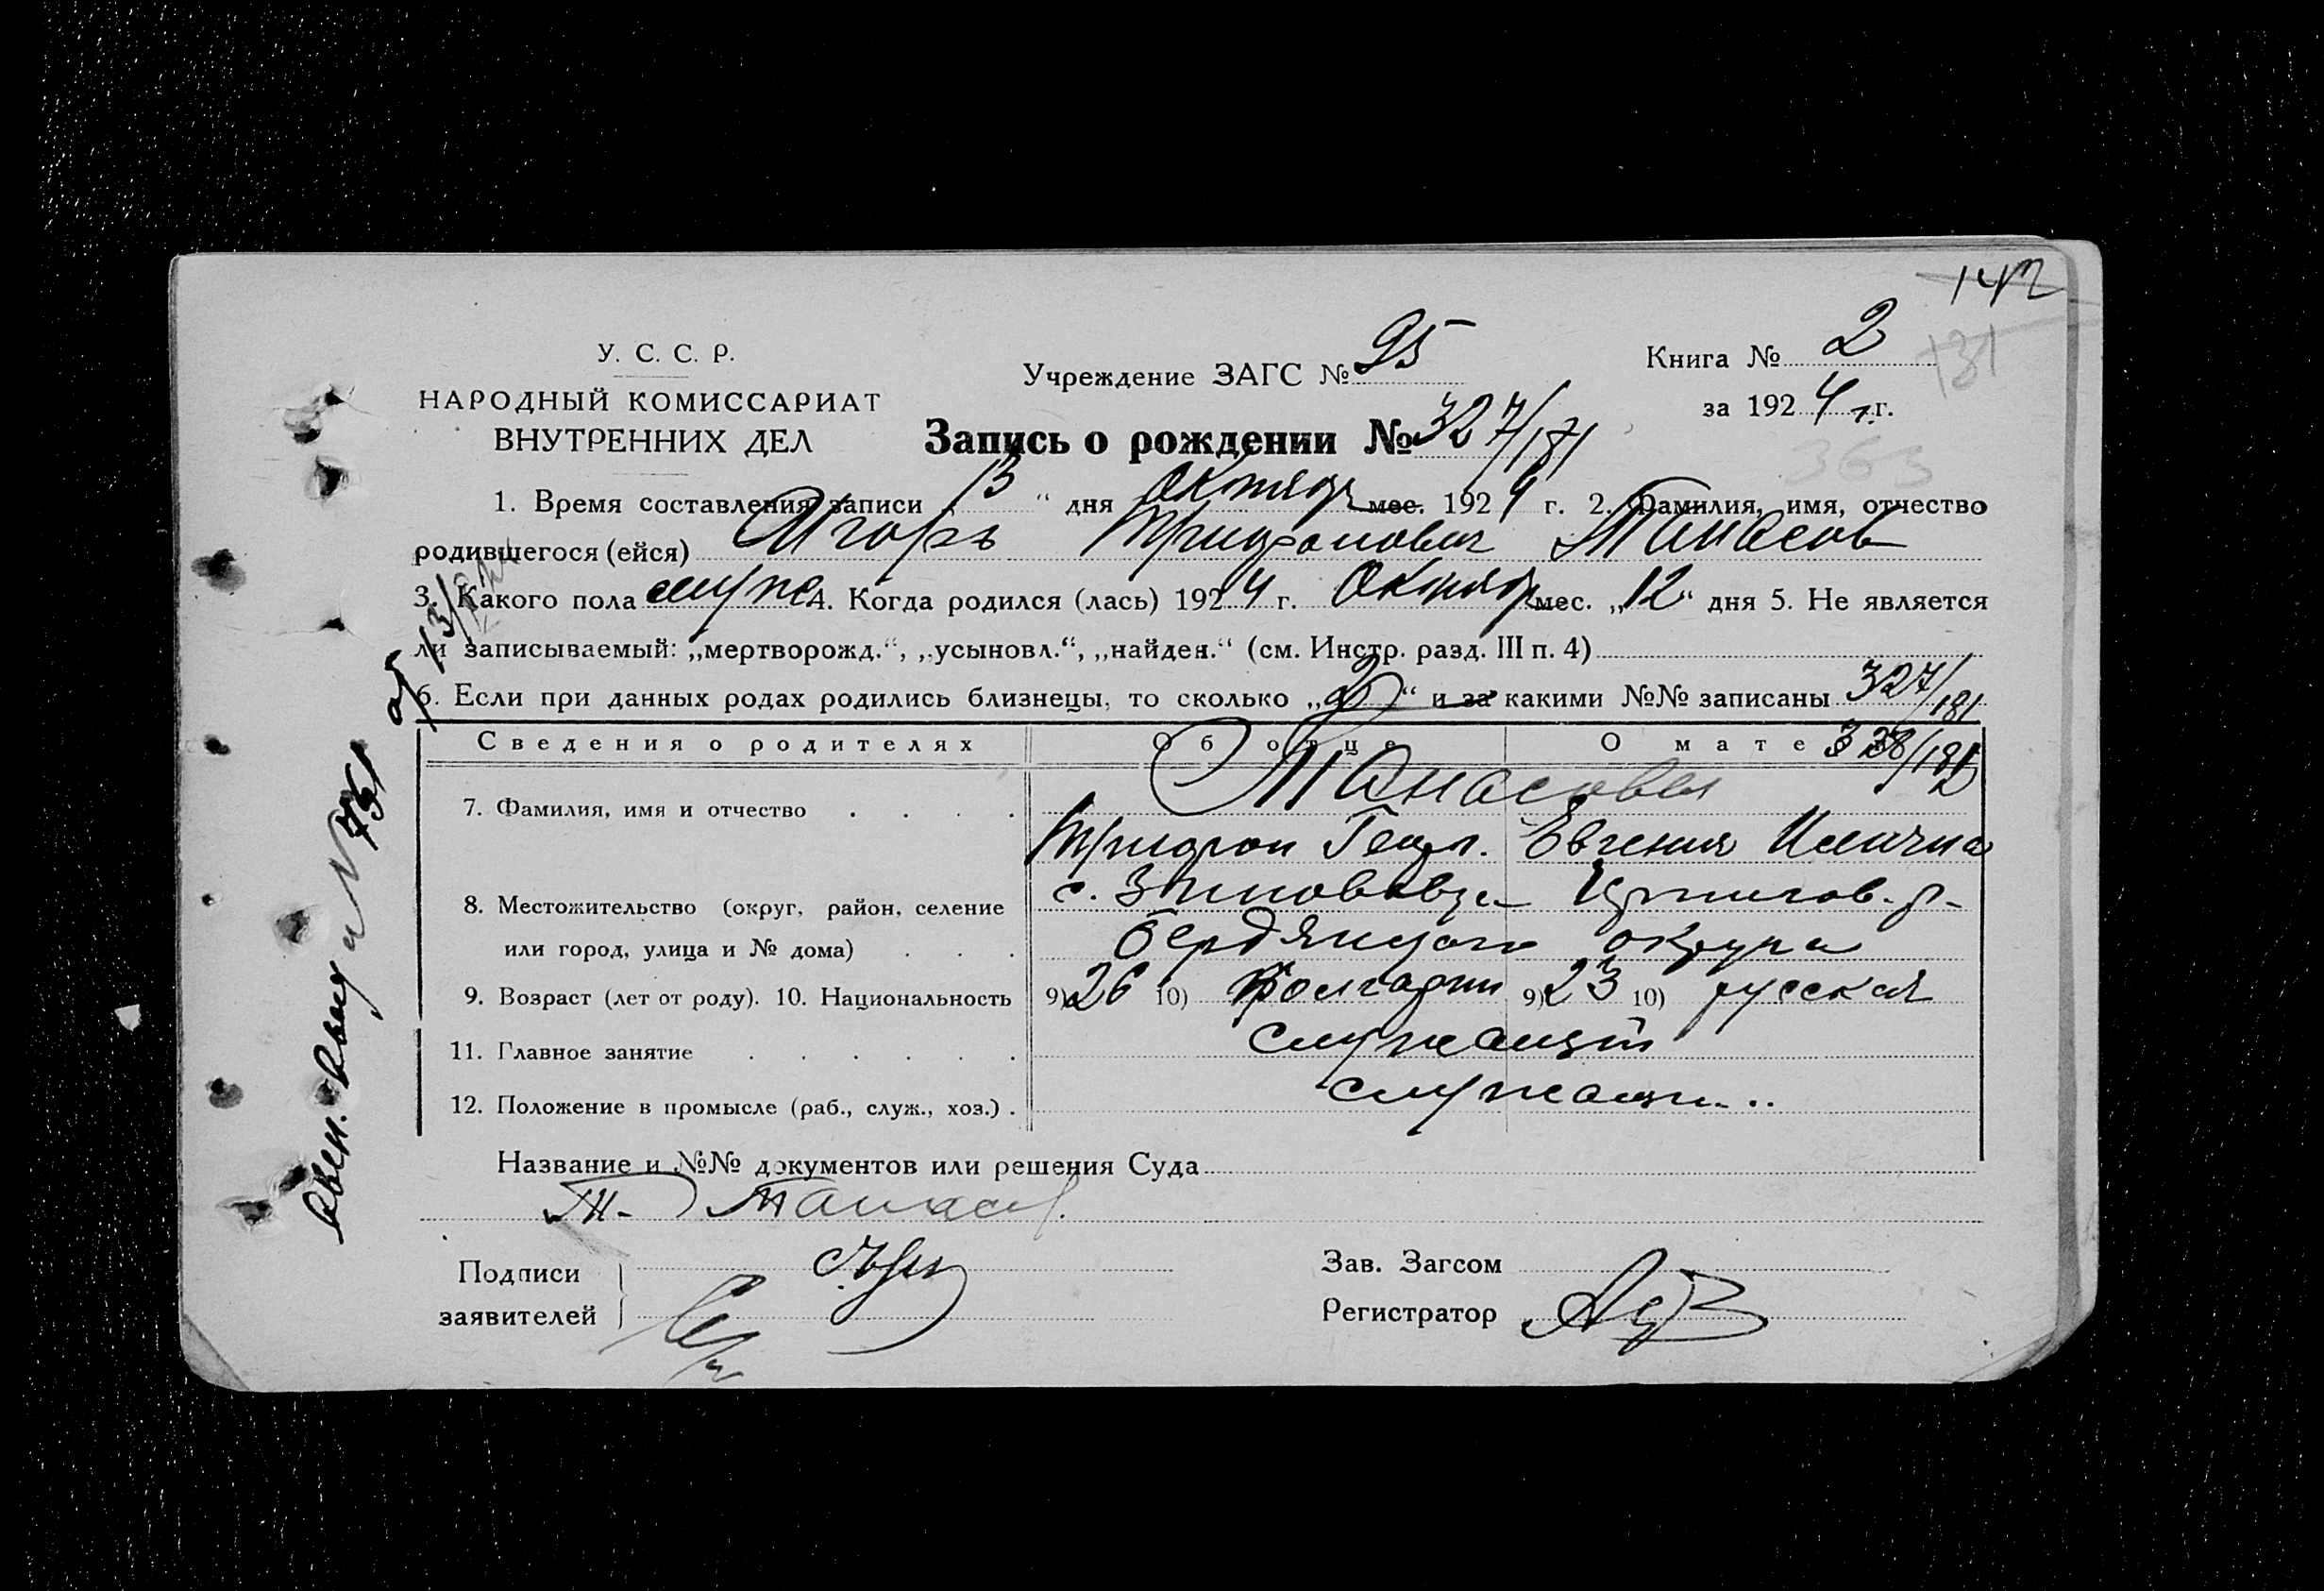 142
У. С. С. Р.
НАРОДНЫЙ КОМИССАРИАТ
ВНУТРЕННИХ ДЕЛ
Учреждение ЗАГС № 95
Книга № 2
131
за 1924 г.
363
Запись о рождении № 327/181
1. Время составления записи 13 “ дня Октября мес. 1924 г. 2. Фамилия, имя, отчество
родившегося (ейся) Игорь Трифонович Танасов
3. Какого пола муж 4. Когда родился (лась) 1924 г. Октяб мес. „12“ дня 5. Не является
ли записываемый: „мертворожд.“, „усыновл.“, „найден.“ (см. Инстр. разд. III п. 4)
6. Если при данных родах родились близнецы, то сколько „2“ и за какими №№ записаны 327/181
328/182
Сведения о родителях Об отце О матери
7. Фамилия, имя и отчество Танасовы
Трифон Евгения
8. Местожительство (округ, район, селение
или город, улица и № дома) Бердянского округа
9. Возраст (лет от роду). 10. Национальность 9) 26 10) Болгарин 9) 23 10) русская
11. Главное занятие служащий
12. Положение в промысле (раб., служ., хоз.)
Название и №№ документов или решения Суда
Т. Танасов
Подписи
заявителей
Зав. Загсом
Регистратор